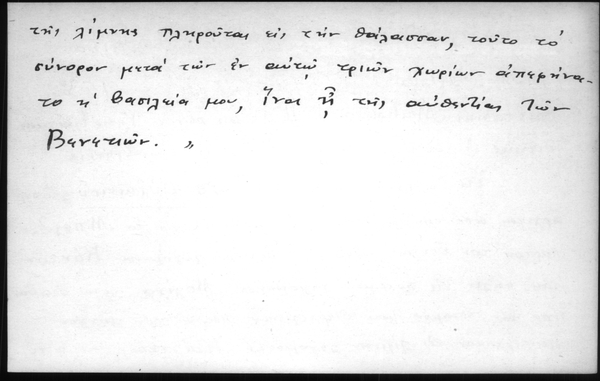 τῆς λίμνης πληροῦται εἰς τὴν θάλασσαν, τοῦτο τὸ
σύνορον μετὰ τῶν ἐν αὐτῷ τριῶν χωρίων ἀπεφήνα-
το ἡ βασιλεία μου, ἵνα ᾖ τῆς αὐθεντίας τῶν
Βενετιῶν. „